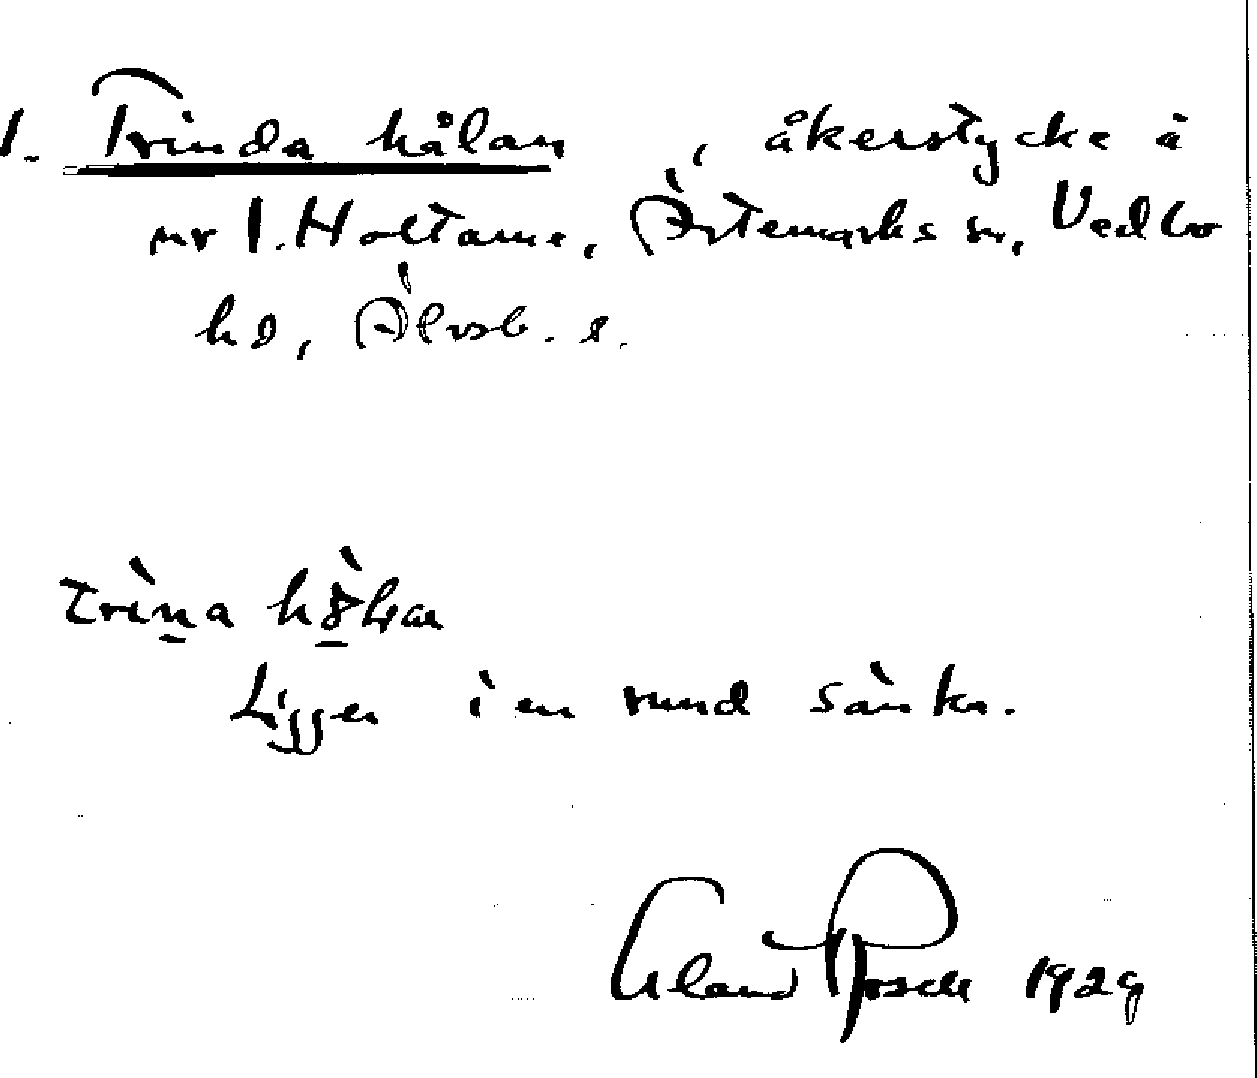 1. Trinda hålan, åkerstycke å
nr 1. Holtane, Ärtemarks sn, Vedbo
hd, Älvsb. l.
trìn̲a
Ligger i en rund sänka.
Erland Rosell 1929